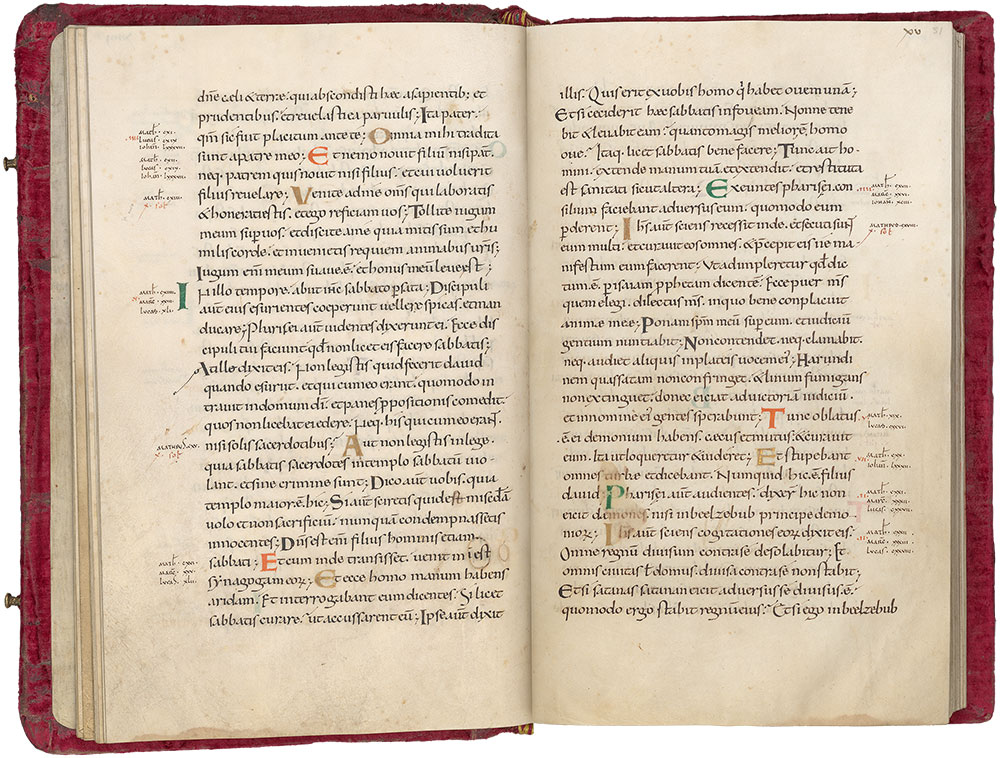 dñe celi & terrae. qui abscondisti haec a sapientib; et
prudentibus. & revelasti ea parvulis; Ita pater.
qm̄ sic fuit placitum ante te; Omnia mihi tradita
sunt a patre meo; Et nemo novit filiū nisi pat̄.
neq. patrem quis novit nisi filius. et cui voluerit
filius revelare; Venite ad me om̄s qui laboratis
& honerati estis. et ego reficiam vos; Tollite iugum
meum sup vos. et discite a me quia mitis sum et hu
milis corde. et invenietis requiem animabus vr̄is;
Iugum em̄ meum suave. ē. et honus meū leve est;
In illo tempore. abiit ihs̄ sabbato p sata; Discipuli
aūt eius esurientes coeperunt vellere spicas. et man
ducare; Pharisei aūt videntes dixerunt ei. Ecce dis
cipuli tui faciunt qd̄ non licet eis facere sabbatis;
At ille dixit eis. Non legistis quid fecerit david
quando esuriit. et qui cum eo erant. quomodo in
travit in domum dī. et panes ppositionis comedit.
quos non licebat ei edere. Neq. his qui cum eo erant.
nisi solis sacerdotibus; Aut non legistis in lege.
quia sabbatis sacerdotes in templo sabbatū vio
lant. et sine crimine sunt; Dico aūt vobis. quia
templo maior. ē. hic; Si aūt sciretis quid est miscd̄iā
volo et non sacrificiū. numquā condempnassetis
innocentes; Dn̄s est em̄ filius hominis etiam
sabbati; Et cum inde transisset. venit in
synagogam eorʒ; Et ecce homo manum habens
aridam. Et interrogabant eum dicentes. Si licet
sabbatis curare. ut accussarent eū; Ipse aūt dixit
math̄. cxi.
lucas. cxix
iohan̄. lxxxvii
math̄. cxii.
lucas. cxix.
math̄. cxiii.
x. sol̄
math̄. cxiiii.
marc̄. xxiiii.
lucas. xli.
x. sol̄
math̄. cxvi.
lucas. xlii.
xv
illis. Quis erit ex vobis homo q̄ habet ovem unā;
Et si ceciderit haec sabbatis in foveam. Nonne tene
bit & levabit eam. quanto magis meliorē. homo
ove. Itaq. licet sabbatis bene facere; Tunc ait ho
mini. extende manum tuā. et extendit. et restituta
est sanitati sicut altera; Exeuntes pharisei. con
silium faciebant adversus eum. quomodo eum
pderent; Ihs̄. aūt sciens recessit inde. et secuti sun̄t
eum multi. et curavit eos omnes. & pcepit eis ne ma
nifestum eum facerent; Ut adimpleretur qd̄ dic
tum. ē. p isaiam pphetam dicentē. Ecce puer m̄s
quem elegi. dilectus m̄s. in quo bene conplacuit
animae meae; Ponam sp̄m meū sup eum. et iudiciū
gentium nuntiabit; Non contendet. neq. clamabit.
neq. audiet aliquis in plateis vocem ei; Harundi
nem quassatam non confringet. & linum fumigans
non extinguet. donec eiciat. ad victoriā iudiciū.
et in nomine ei gentes sperabunt; Tunc oblatus.
. ē. ei demonium habens. caecus et mutus. & curavit
eum. Ita ut loqueretur & videret; Et stupebant
omnes turbae et dicebant. Numquid hic. ē. filius
david; Pharisei. aūt audientes. dixer̄ hic non
eicit demones. nisi in beelzebub principe demo
morʒ; Ihs̄. aūt sciens cogitationes eorʒ dixit eis.
Omne regnū divisum contra se desolabitur; Et
omnis civitas t̄ domus. divisa contra se non stabit;
Et si satanas satanan eicit. adversus se divisus. ē.
quomodo ergo stabit regnū eius; Et si ego in beelzebub
math̄. cxvii.
x. sol̄
math̄. cxix.
math̄. cxx.
math̄. cxxi.
lucas. cxxvii.
math̄. cxxii.